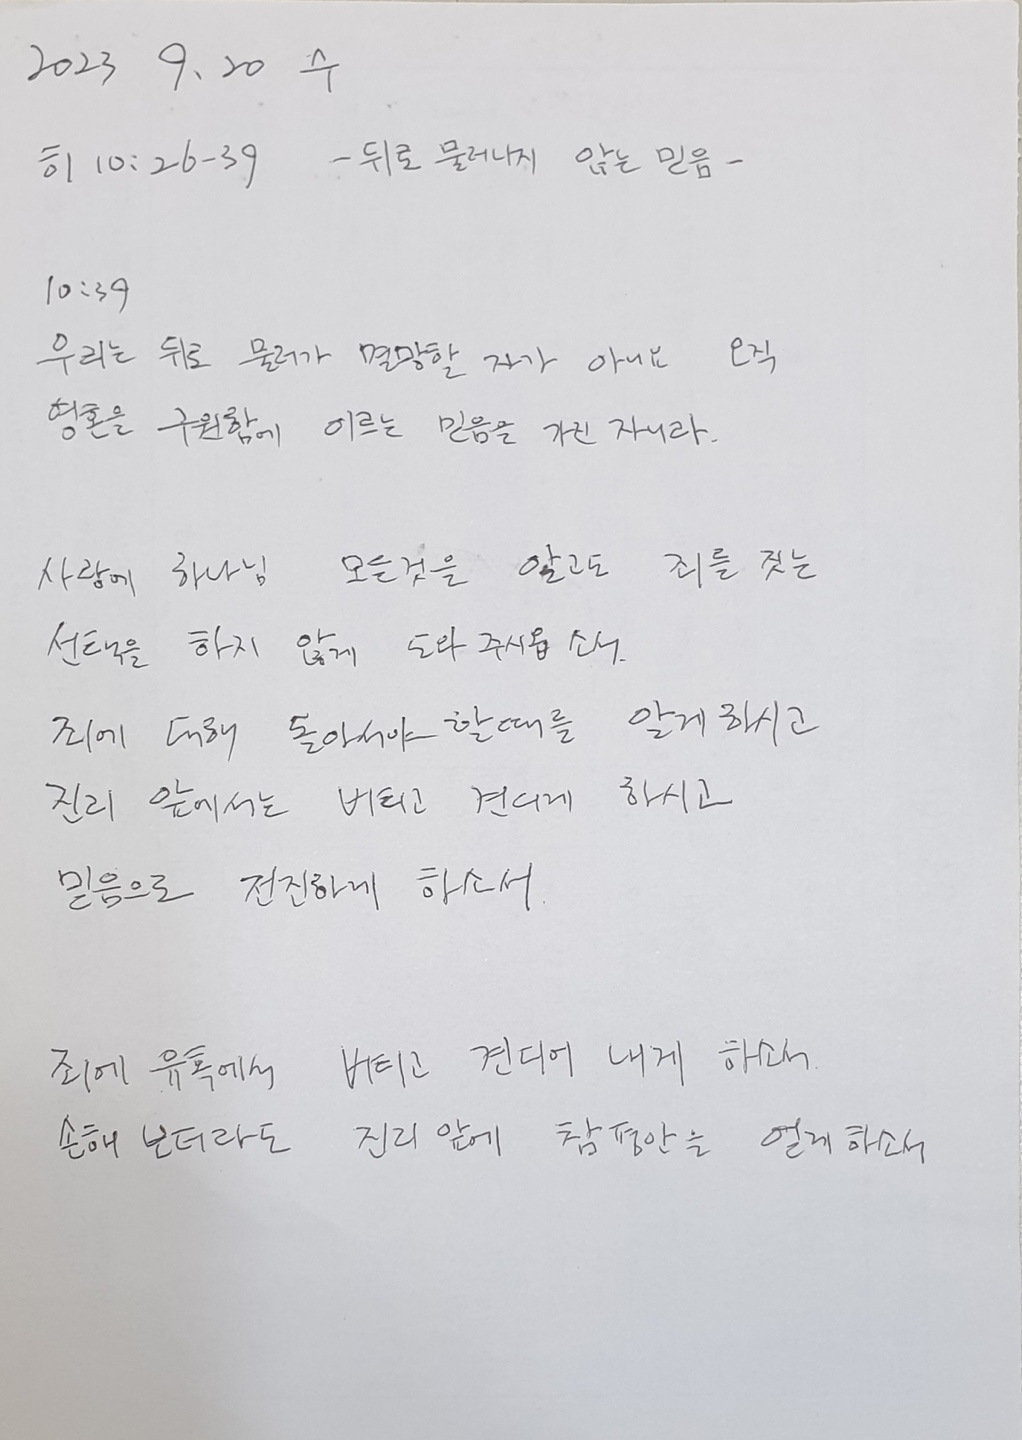 2023 9. 20 수
히 10:26-39 - 뒤로 물러나지 않는 믿음 -
10:39
우리는 뒤로 물러가 멸망할 자가 아니요 오직
영혼을 구원함에 이르는 믿음을 가진 자니라.
사랑에 하나님 모든것을 알고도 죄를 짓는
선택을 하지 않게 도와 주시옵 소서.
죄에 대해 돌아서야 할때를 알게 하시고
진리 앞에서는 버티고 견디게 하시고
믿음으로 전진하게 하소서.
죄에 유혹에서 버티고 견디어 내게 하소서.
손해 본더라도 진리 앞에 참 평안을 얻게 하소서